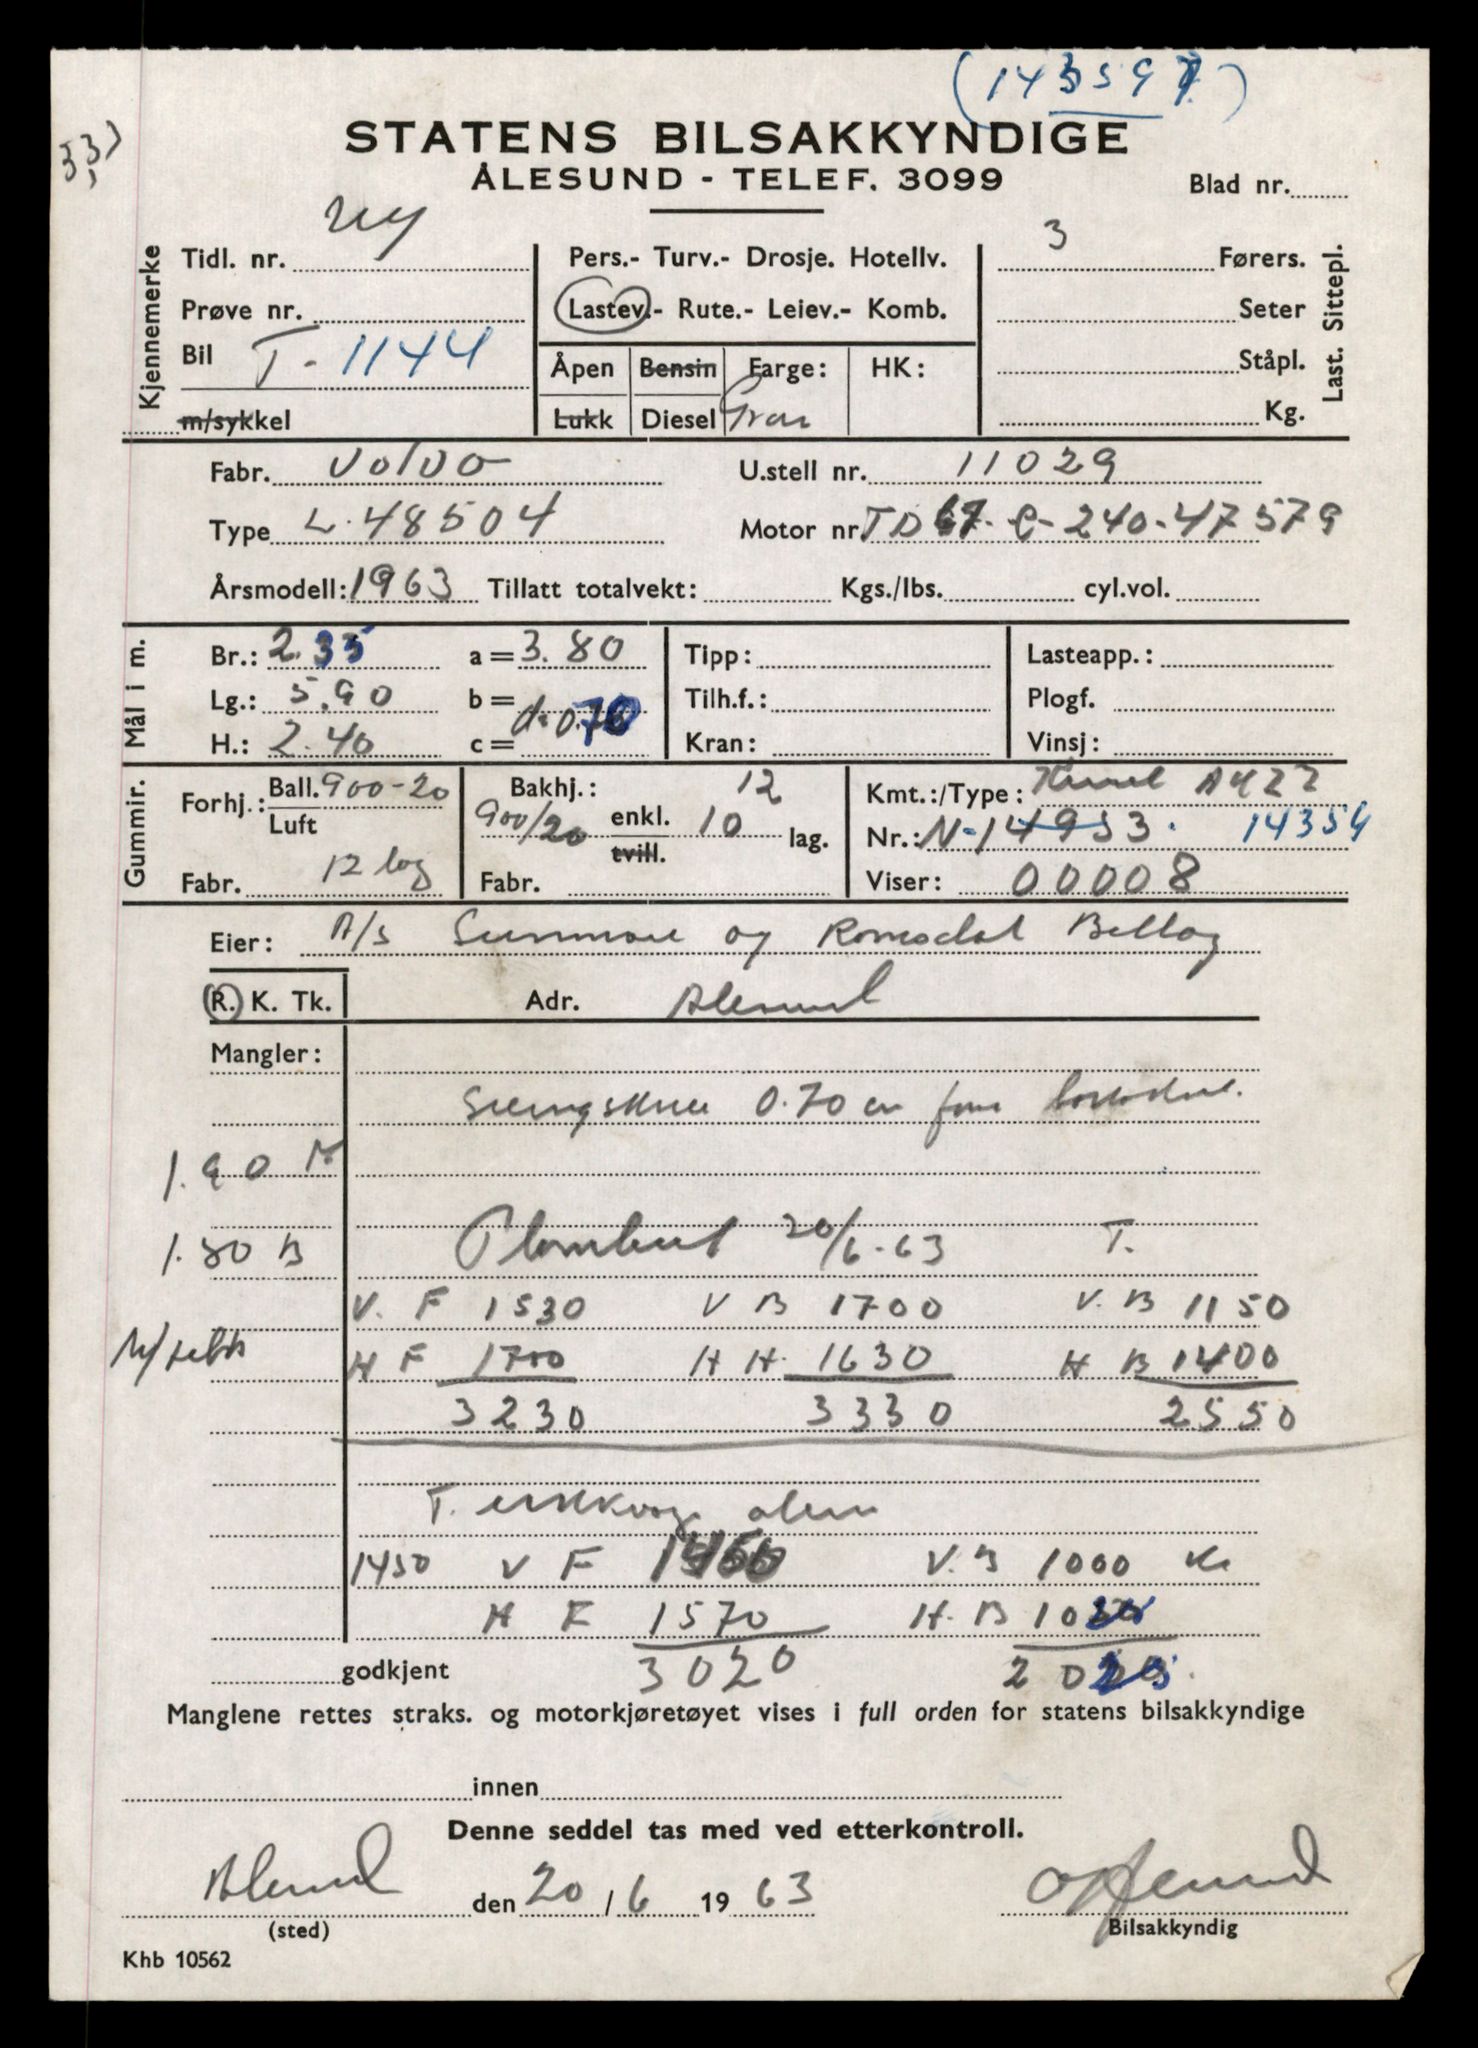 (143597)
STATENS BILSAKKYNDIGE
ÅLESUND - TELEF. 3099
Blad nr.
Kjennemerke
Tidl. nr. Ny
Prøve nr.
Bil T-1144
m/sykkel
Pers.- Turv.- Drosje. Hotellv.
Lastev.- Rute.- Leiev.- Komb.
Åpen Bensin Farge: HK:
Lukk Diesel Grøn
Last. Sittepl.
3 Førers.
Seter
Ståpl.
Kg.
Fabr. Volvo U.stell nr. 11029
Type L.48504 Motor nr TD 67-C-240-47579
Årsmodell: 1963 Tillatt totalvekt: Kgs./lbs. cyl.vol.
Mål i m.
Br.: 2.35 a = 3.80 Tipp: Lasteapp.:
Lg.: 5.90 b = Tilh.f.: Plogf.
H.: 2.40 c = d=0.70 Kran: Vinsj:
Gummir.
Forhj.: Ball. 900-20 Bakhj.: 12 Kmt.:/Type:
Luft 900/20 enkl. 10 lag. Nr.: N-14953. 14359
tvill.
Fabr. 12 lag Fabr. Viser: 00008
Eier: A/s Sunnmøre og Romsdal Billag
(R.) K. Tk. Adr. Ålesund
Mangler:
0.70 cm
1.90 F
Plombert 20/6-63 T.
1.80 B
V. F 1530 V B 1700 V. B 1150
H F 1700 H H. 1630 H B 1400
3230 3330 2550
T.
1450 V F V.B 1000 Kg
H F 1570 H.B
3020
godkjent
Manglene rettes straks. og motorkjøretøyet vises i full orden for statens bilsakkyndige
innen
Denne seddel tas med ved etterkontroll.
Ålesund den 20/6 1963
(sted) Bilsakkyndig
Khb 10562